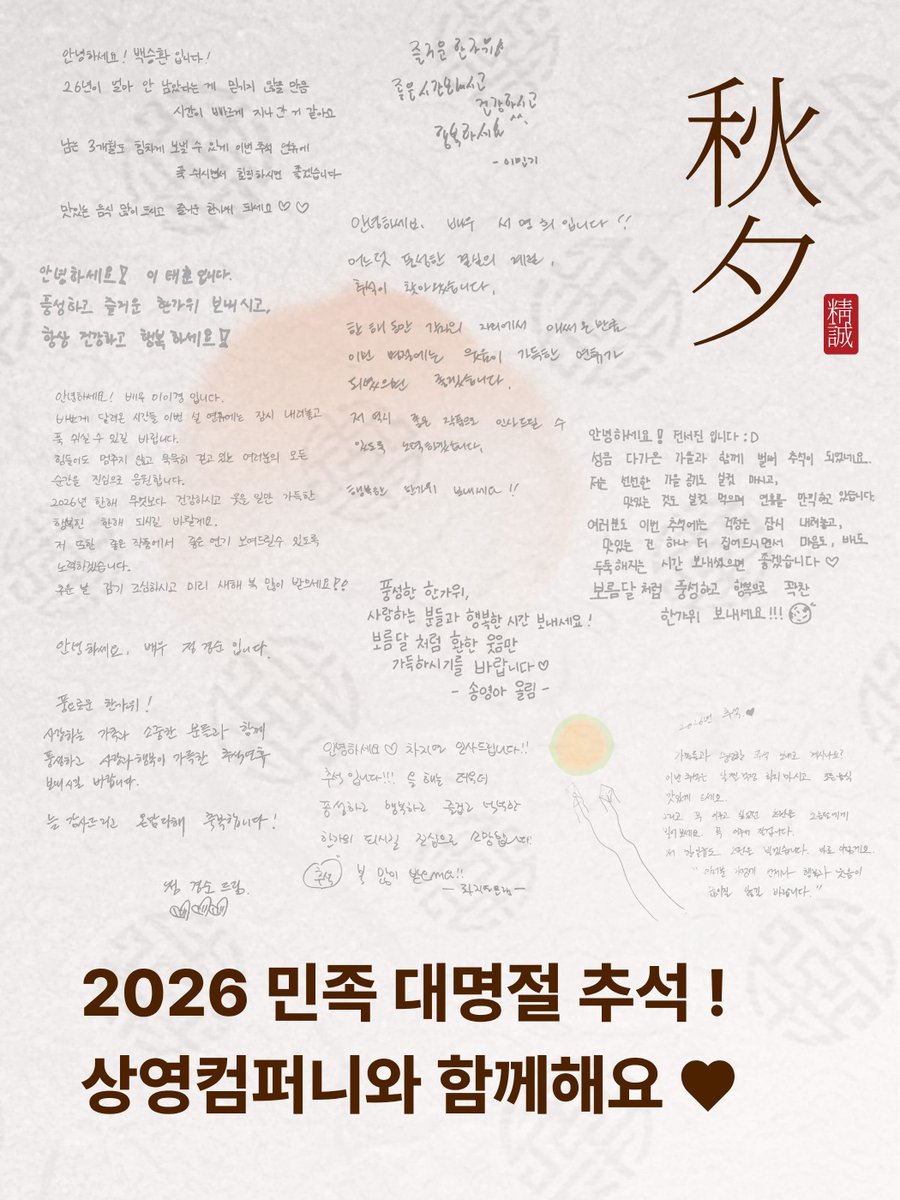 안녕하세요! 백승환입니다!
26년이 얼마 안 남았다는 게 믿기지 않을 만큼
시간이 빠르게 지나간 거 같아요
남은 3개월도 힘차게 보낼 수 있게 이번 추석 연휴에
푹 쉬시면서 힐링하시면 좋겠습니다
맛있는 음식 많이 드시고 즐거운 한가위 되세요♡♡
즐거운 한가위
좋은시간보내시고
건강하시고
행복하세요^^
秋夕
精誠
안녕하세요. 배우 서영희입니다
어느덧 풍성한 결실의 계절,
추석이 찾아왔습니다.
한 해 동안 각자의 자리에서 애써온만큼
이번 명절에는 웃음이 가득한 연휴가
되었으면 좋겠습니다.
저 역시 좋은 작품으로 인사드릴 수
있도록 노력하겠습니다.
행복한 한가위 보내세요!!
안녕하세요! 이태훈입니다.
풍성하고 즐거운 한가위 보내시고,
항상 건강하고 행복하세요!
안녕하세요! 배우 이이경입니다.
바쁘게 달려온 시간들 이번 설 연휴에는 잠시 내려놓고
푹 쉬실 수 있길 바랍니다.
힘들어도 멈추지 않고 묵묵히 걷고 있는 여러분의 모든
순간을 진심으로 응원합니다.
2026년 한해 무엇보다 건강하시고 웃을 일만 가득한
행복진 한해 되시길 바랄게요.
저 또한 좋은 작품에서 좋은 연기 보여드릴수 있도록
노력하겠습니다.
추운 날 감기 조심하시고 미리 새해 복 많이 받으세요!
안녕하세요! 전서진입니다 :D
성큼 다가온 가을과 함께 벌써 추석이 되었네요.
저는 선선한 가을 공기도 실컷 마시고,
맛있는 것도 실컷 먹으며 연휴를 만끽하고 있습니다.
여러분도 이번 추석에는 걱정은 잠시 내려놓고,
맛있는 건 하나 더 집어드시면서 마음도, 배도
두둑해지는 시간 보내셨으면 좋겠습니다♡
보름달처럼 풍성하고 행복으로 꽉찬
한가위 보내세요!!!
풍성한 한가위,
사랑하는 분들과 행복한 시간 보내세요!
보름달 처럼 환한 웃음만
가득하시기를 바랍니다♡
- 송영아 올림 -
안녕하세요. 배우 정경순입니다.
풍요로운 한가위!
사랑하는 가족과 소중한 분들과 함께
풍성하고 사랑과 행복이 가득한 추석연휴
보내시길 바랍니다.
늘 감사드리고 온맘다해 축복합니다!
정경순 드림.
안녕하세요♡ 차지연 인사드립니다!!
추석입니다!!! 올 해는 더욱더
풍성하고 행복하고 즐겁고 넉넉한
한가위 되시길 진심으로 소망합니다!
추석 복 많이 받으세요!!
- 차지연드림 -
2026년 추석.♥
2026 민족 대명절 추석 !
상영컴퍼니와 함께해요 ♥